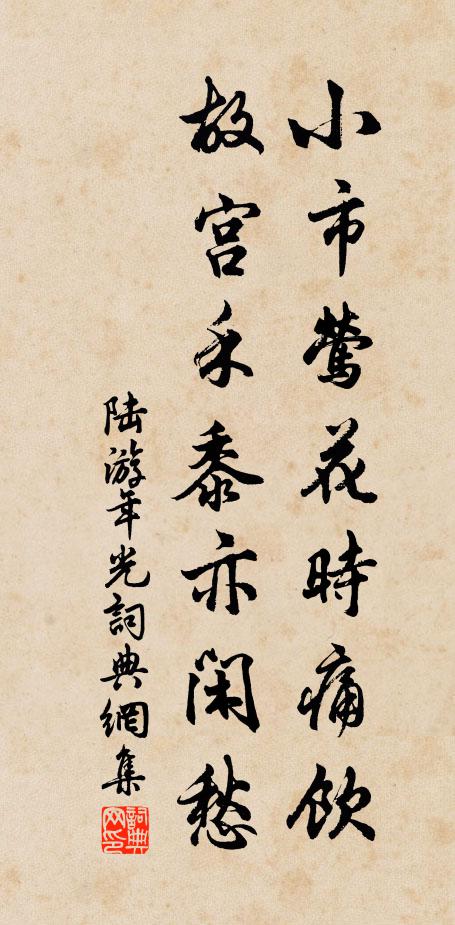 小市莺花時痛飲
故宫禾黍亦閑愁
陆游年光詞典網集
詞典网印